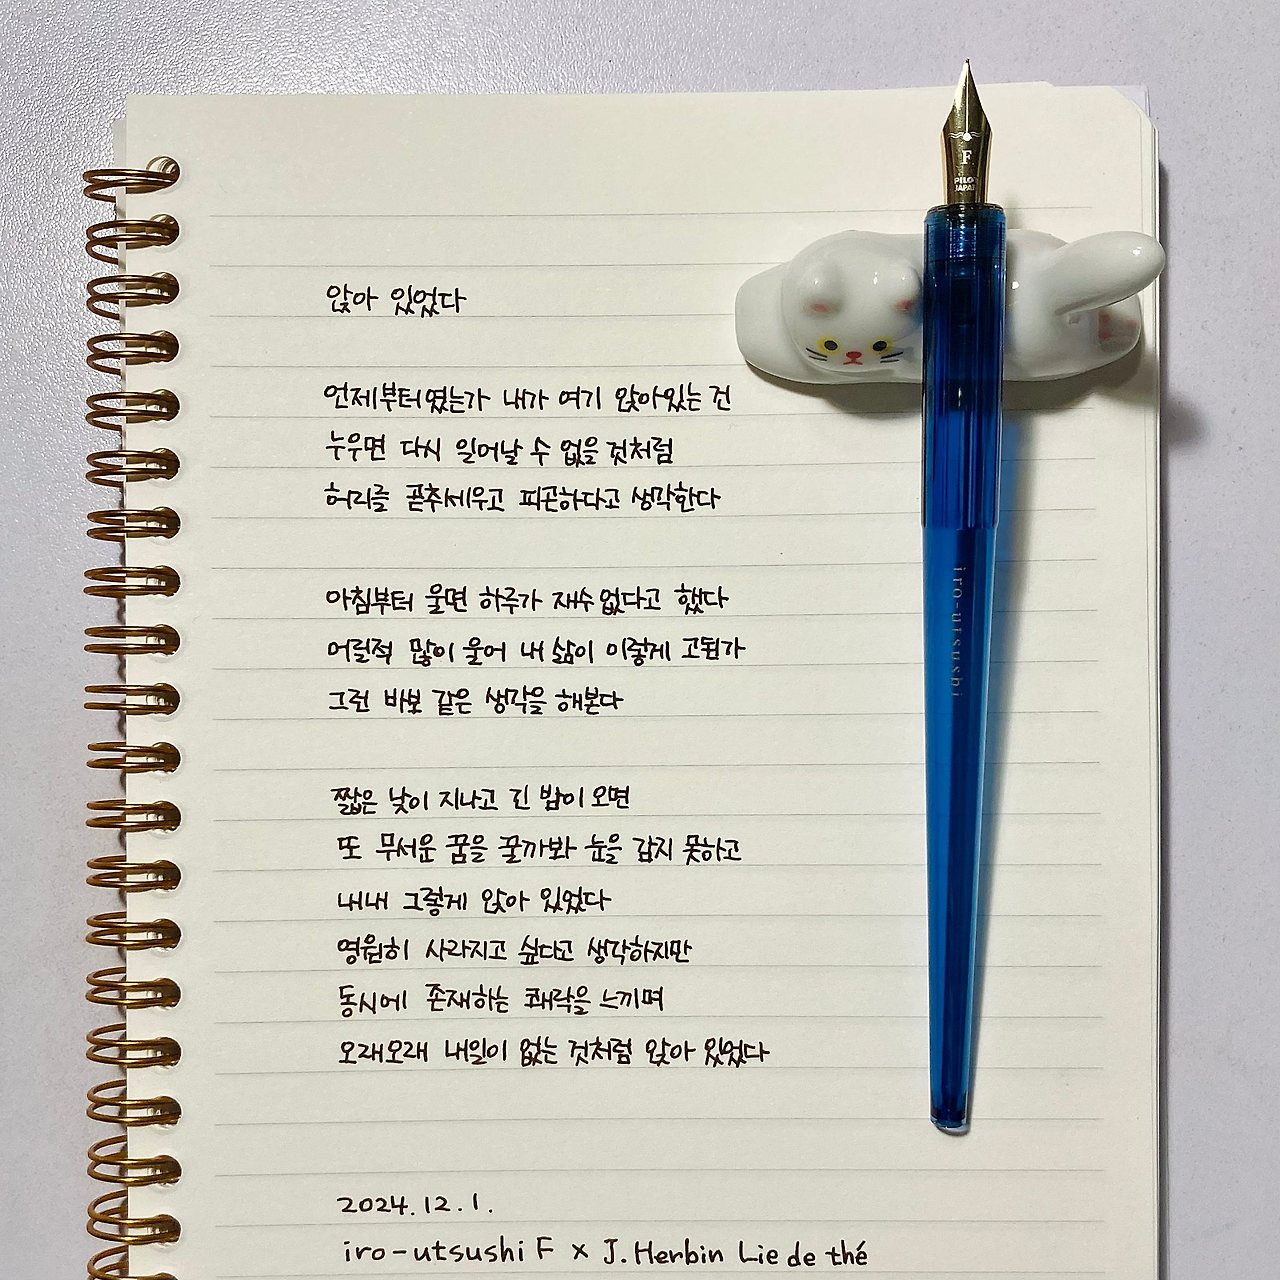 앉아 있었다
언제부터였는가 내가 여기 앉아있는 건
누우면 다시 일어날 수 없을 것처럼
허리를 곧추세우고 피곤하다고 생각한다
아침부터 울면 하루가 재수없다고 했다
어릴적 많이 울어 내 삶이 이렇게 고된가
그런 바보 같은 생각을 해본다
짧은 낮이 지나고 긴 밤이 오면
또 무서운 꿈을 꿀까봐 눈을 감지 못하고
내내 그렇게 앉아 있었다
영원히 사라지고 싶다고 생각하지만
동시에 존재하는 쾌락을 느끼며
오래오래 내일이 없는 것처럼 앉아 있었다
2024.12.1.
iro-utsushi F x J.Herbin Lie de thé
F
PILOT
JAPAN
iro-utsushi